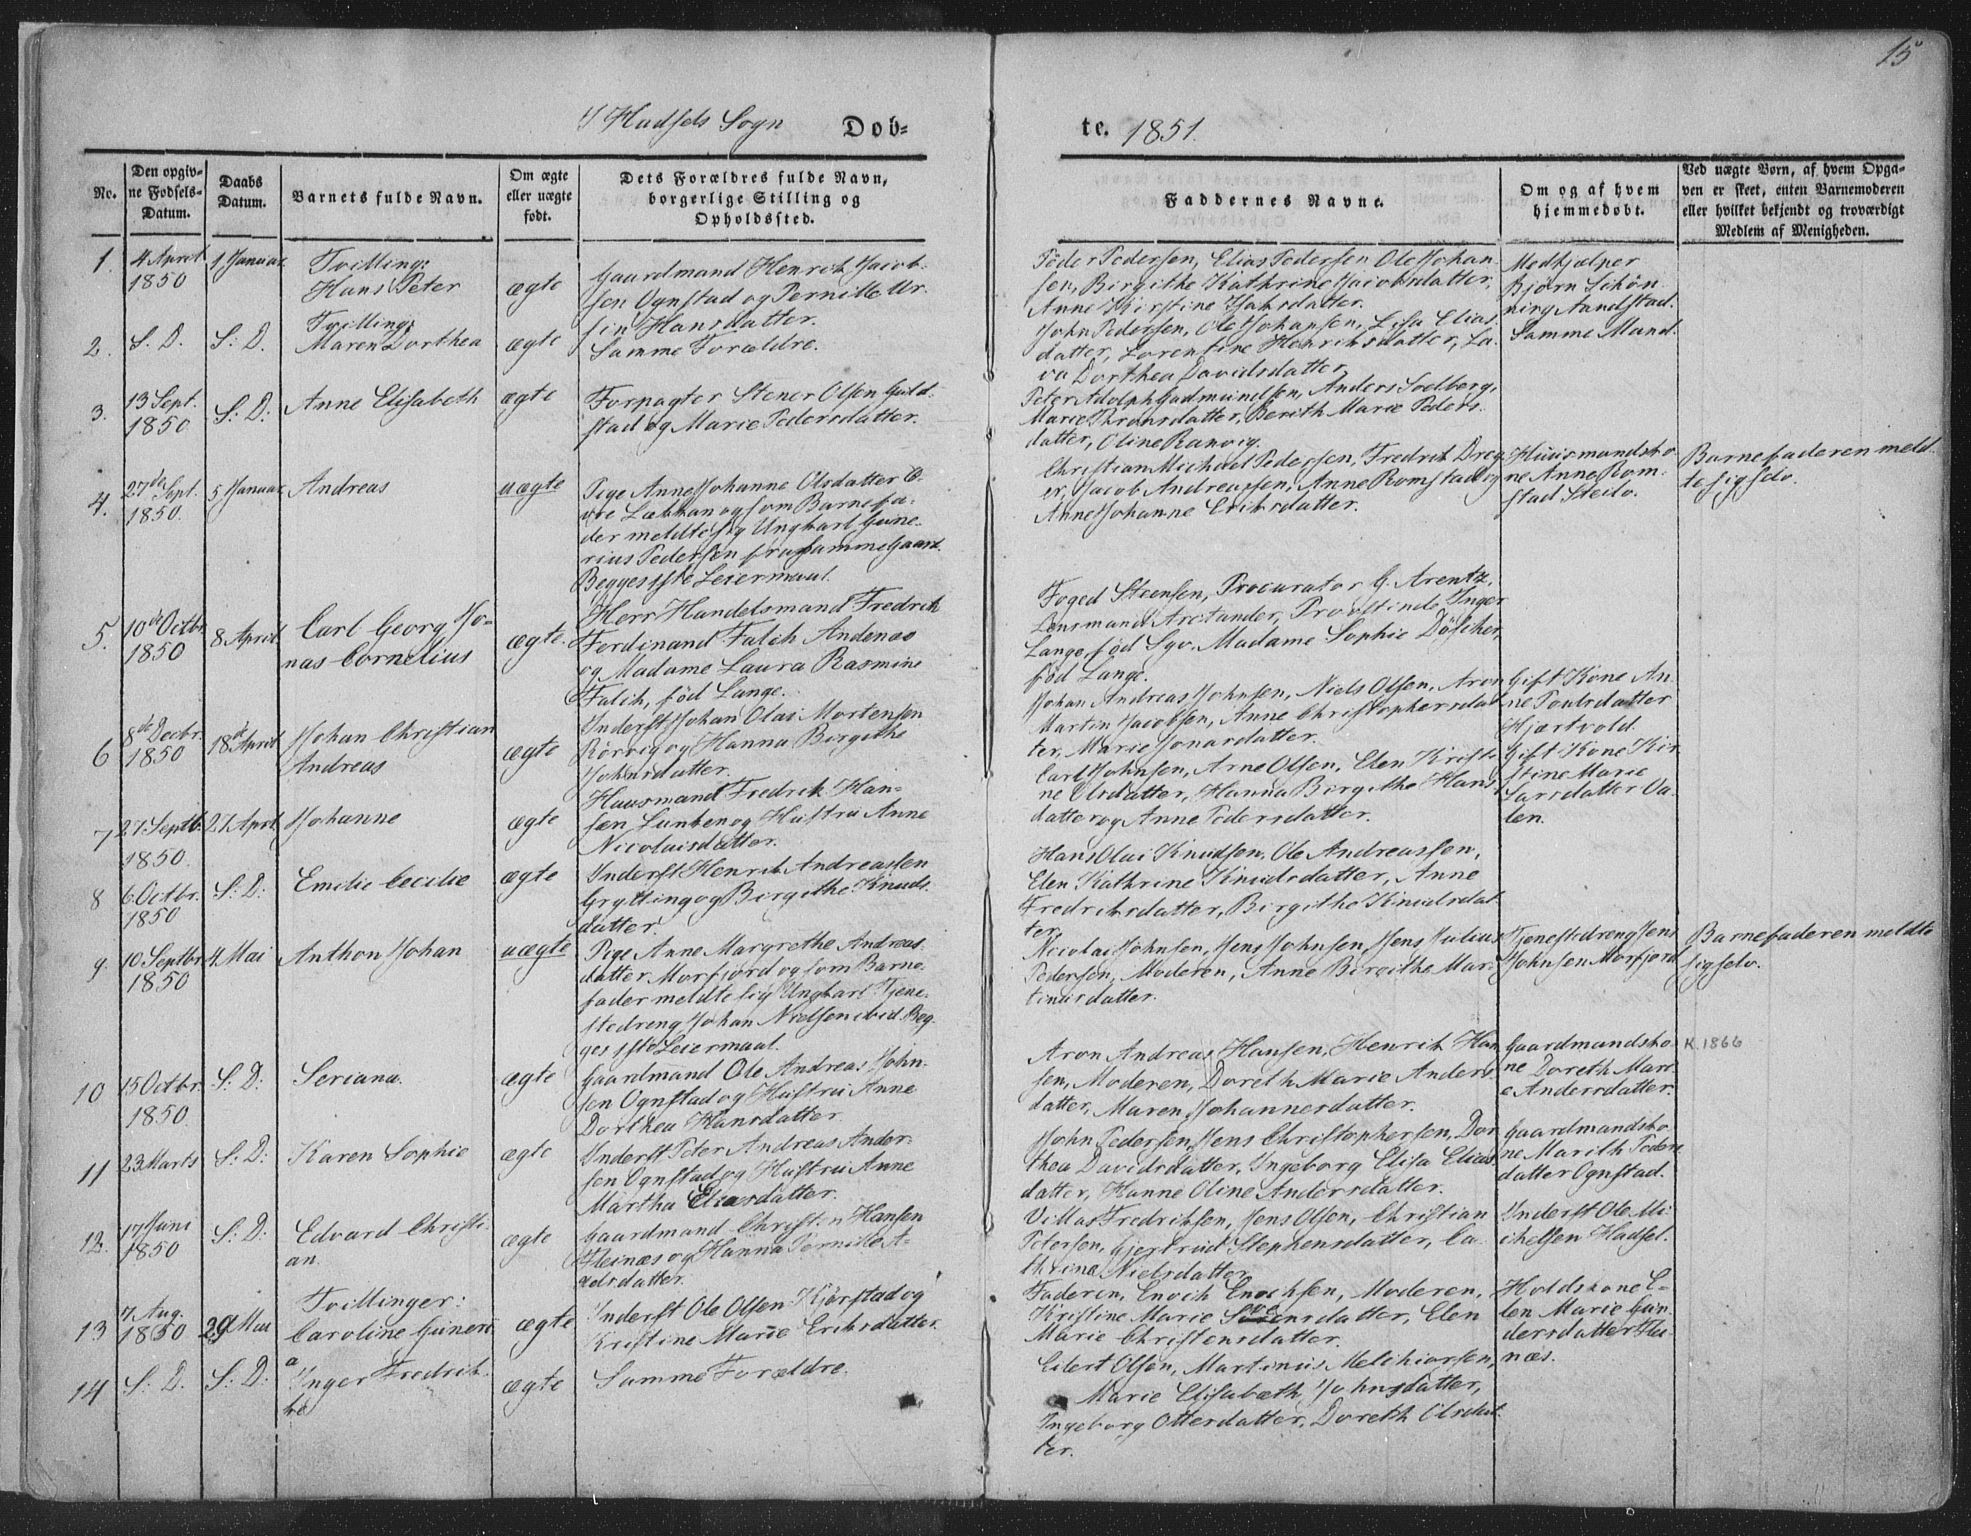 15
I Hadsels Sogn Dob-
te. 1851.
No.
Den opgiv-
ne Fødsels-
Datum.
Daabs
Datum.
Barnets fulde Navn.
Om ægte
eller uægte
født.
Dets Forældres fulde Navn,
borgerlige Stilling og
Opholdssted.
Faddernes Navne.
Om og af hvem
hjemmedøbt.
Ved uægte Børn, af hvem Opga-
ven er skeet, enten Barnemoderen
eller hvilket bekjendt og troværdigt
Medlem af Menigheden.
1.
4 April
1850
1 Januar
Tvilling:
Hans Peter
ægte
Gaardmand Henrik Jacob-
sen Ognstad og Pernille Ur-
sin Hansdatter.
Peder Pedersen, Elias Pedersen Ole Johan-
sen, Birgithe Kathrine Jacobsdatter,
Anne Kirstine
Medhjælper
Bjørn Schøn
ning Sandstad.
2.
S. D.
S: D.
Tvilling:
Maren Dorthea
ægte
Samme Forældre.
John Pedersen, Ole Johansen, Lisa Elias
datter, Lorentine Henriksdatter, La-
va Dorthea Davidsdatter
Samme Mand
3.
13 Sept.
1850
S: D:
Anne Elisabeth
ægte
Forpagter Stener Olsen Guld-
stad og Marie Pedersdatter.
Peter Adolph Gudmundsen, Anders Soelberg,
Marie Thronsdatter, Berith Marie Peders-
datter, Oline Ranvig.
4.
27de Sept.
1850.
5 Januar
Andreas
uægte
Pige Anne Johanne Olsdatter Ø-
vre Læhkan og som Barnefa-
der meldte sig Ungkarl Gune-
rius Pedersen fra samme Gaard.
Begges 1ste Leiermaal.
Christian Michael Pedersen, Fredrik Dreg
er, Jacob Andreassen, Anne Romstad og
Anne Johanne Eriksdatter.
Huusmandsko
ne Anne Rom-
stad Steilo.
Barnefaderen meld-
te sig selv.
5.
10de Octbr
1850
8 April
Carl Georg Jo-
nas Cornelius
ægte.
Herr Handelsmand Fredrik
Ferdinand Falch Andenæs
og Madame Laura Rasmine
Falch, født Lange.
Foged Steensen, Procurator G. Arentz,
Lensmand Arctander, Provstinde Inger
Lange, fød Sgv. Madame Sophie
fød Lange.
6
8de Decbr.
1850
18de April
Johan Christian
Andreas
ægte
Inderst Johan Olai Mortensen
Rørvig og Hanna Birgithe
Johnsdatter.
Johan Andreas Johnsen, Niels Olsen, Aron
Martin Jacobsen, Anne Christophersdat
ter, Marie Jonasdatter.
Gift Kone An-
ne Poulsdatter
Hjartvold
7
27 Septb.
1850.
21 April
Johanne
ægte
Huusmand Fredrik Han-
sen Lunken og Hustru Anne
Nicolaisdatter.
Carl Johnsen, Arne Olsen, Elen Kristi
ne Olsdatter, Hanna Birgithe Hans
datter og Anne Pedersdatter.
Gift Kone Kir
stine Marie
Larsdatter Da-
len.
8
6 Octbr.
1850
S: D:
Emilie Cecilie
ægte
Inderst Henrik Andreassen
Grytting og Birgithe Knuds-
datter.
Hans Olai Knudsen, Ole Andreassen,
Elen Kathrine Knudsdatter, Anne
Fredriksdatter, Birgithe Knudsdat
ter.
9.
10 Septbr
1850
4 Mai
Anthon Johan
uægte
Pige Anne Margrethe Andreas-
datter Morfjord og som Barne-
fader meldte sig Ungkarl Tjene-
stedreng Johan Nielsen ibid. Beg-
ges 1ste Leiermaal.
Nicolai Johnsen, Jens Johnsen, Jens Julius
Pedersen, Moderen, Anne Birgithe Mar-
tinusdatter.
Tjenestedreng Jens
Johnsen Morfjord
Barnefaderen meldte
sig selv.
10
15 Octbr.
1850.
S: D:
Seriana.
ægte
Gaardmand Ole Andreas John-
sen Ognstad og Hustru Anne
Dorthea Hansdatter.
Aron Andreas Hansen, Henrik Han
sen, Moderen, Doreth Marie Anders
datter, Maren Johannesdatter.
Gaardmandsko
ne Doreth Mari-
e Andersdatter.
K. 1866
11
23 Marts
S: D:
Karen Sophie
ægte
Inderst Peter Andreas Ander-
sen Ognstad og Hustru Anne
Martha Eliasdatter.
John Pedersen, Jens Christophersen, Dor
thea Davidsdatter, Ingeborg Elisa Elias
datter, Hanne Oline Andersdatter.
Gaardmandsko
ne Marith Peders
datter Ognstad.
12.
17 Juni
1850
S: D:
Edvard Christi-
an.
ægte
Gaardmand Christen Hansen
Steinæs og Hanna Pernille A-
xelsdatter.
Villas Fredriksen, Jens Olsen, Christian
Petersen, Gjertrud Stephensdatter, Ca-
thrina Nielsdatter.
Inderst Ole Mi-
chelsen Hadsel.
13
7 Aug.
1850
29 Mai
Tvillinger:
Caroline Guneri
a
ægte
Inderst Ole Olsen Kjørstad og
Kristine Marie Eriksdatter
Faderen, Enoch Enochsen, Moderen,
Kristine Marie Svensdatter, Elen
Marie Christensdatter
Holdskone E-
len Marie Gun-
dersdatter Stei-
næs.
14
S: D.
S: D:
Inger Fredrik-
ke
ægte
Samme Forældre.
Eilert Olsen, Martinus Melchiorsen,
Marie Elisabeth Johnsdatter,
Ingeborg Ottersdatter, Doreth Olsdat-
ter.